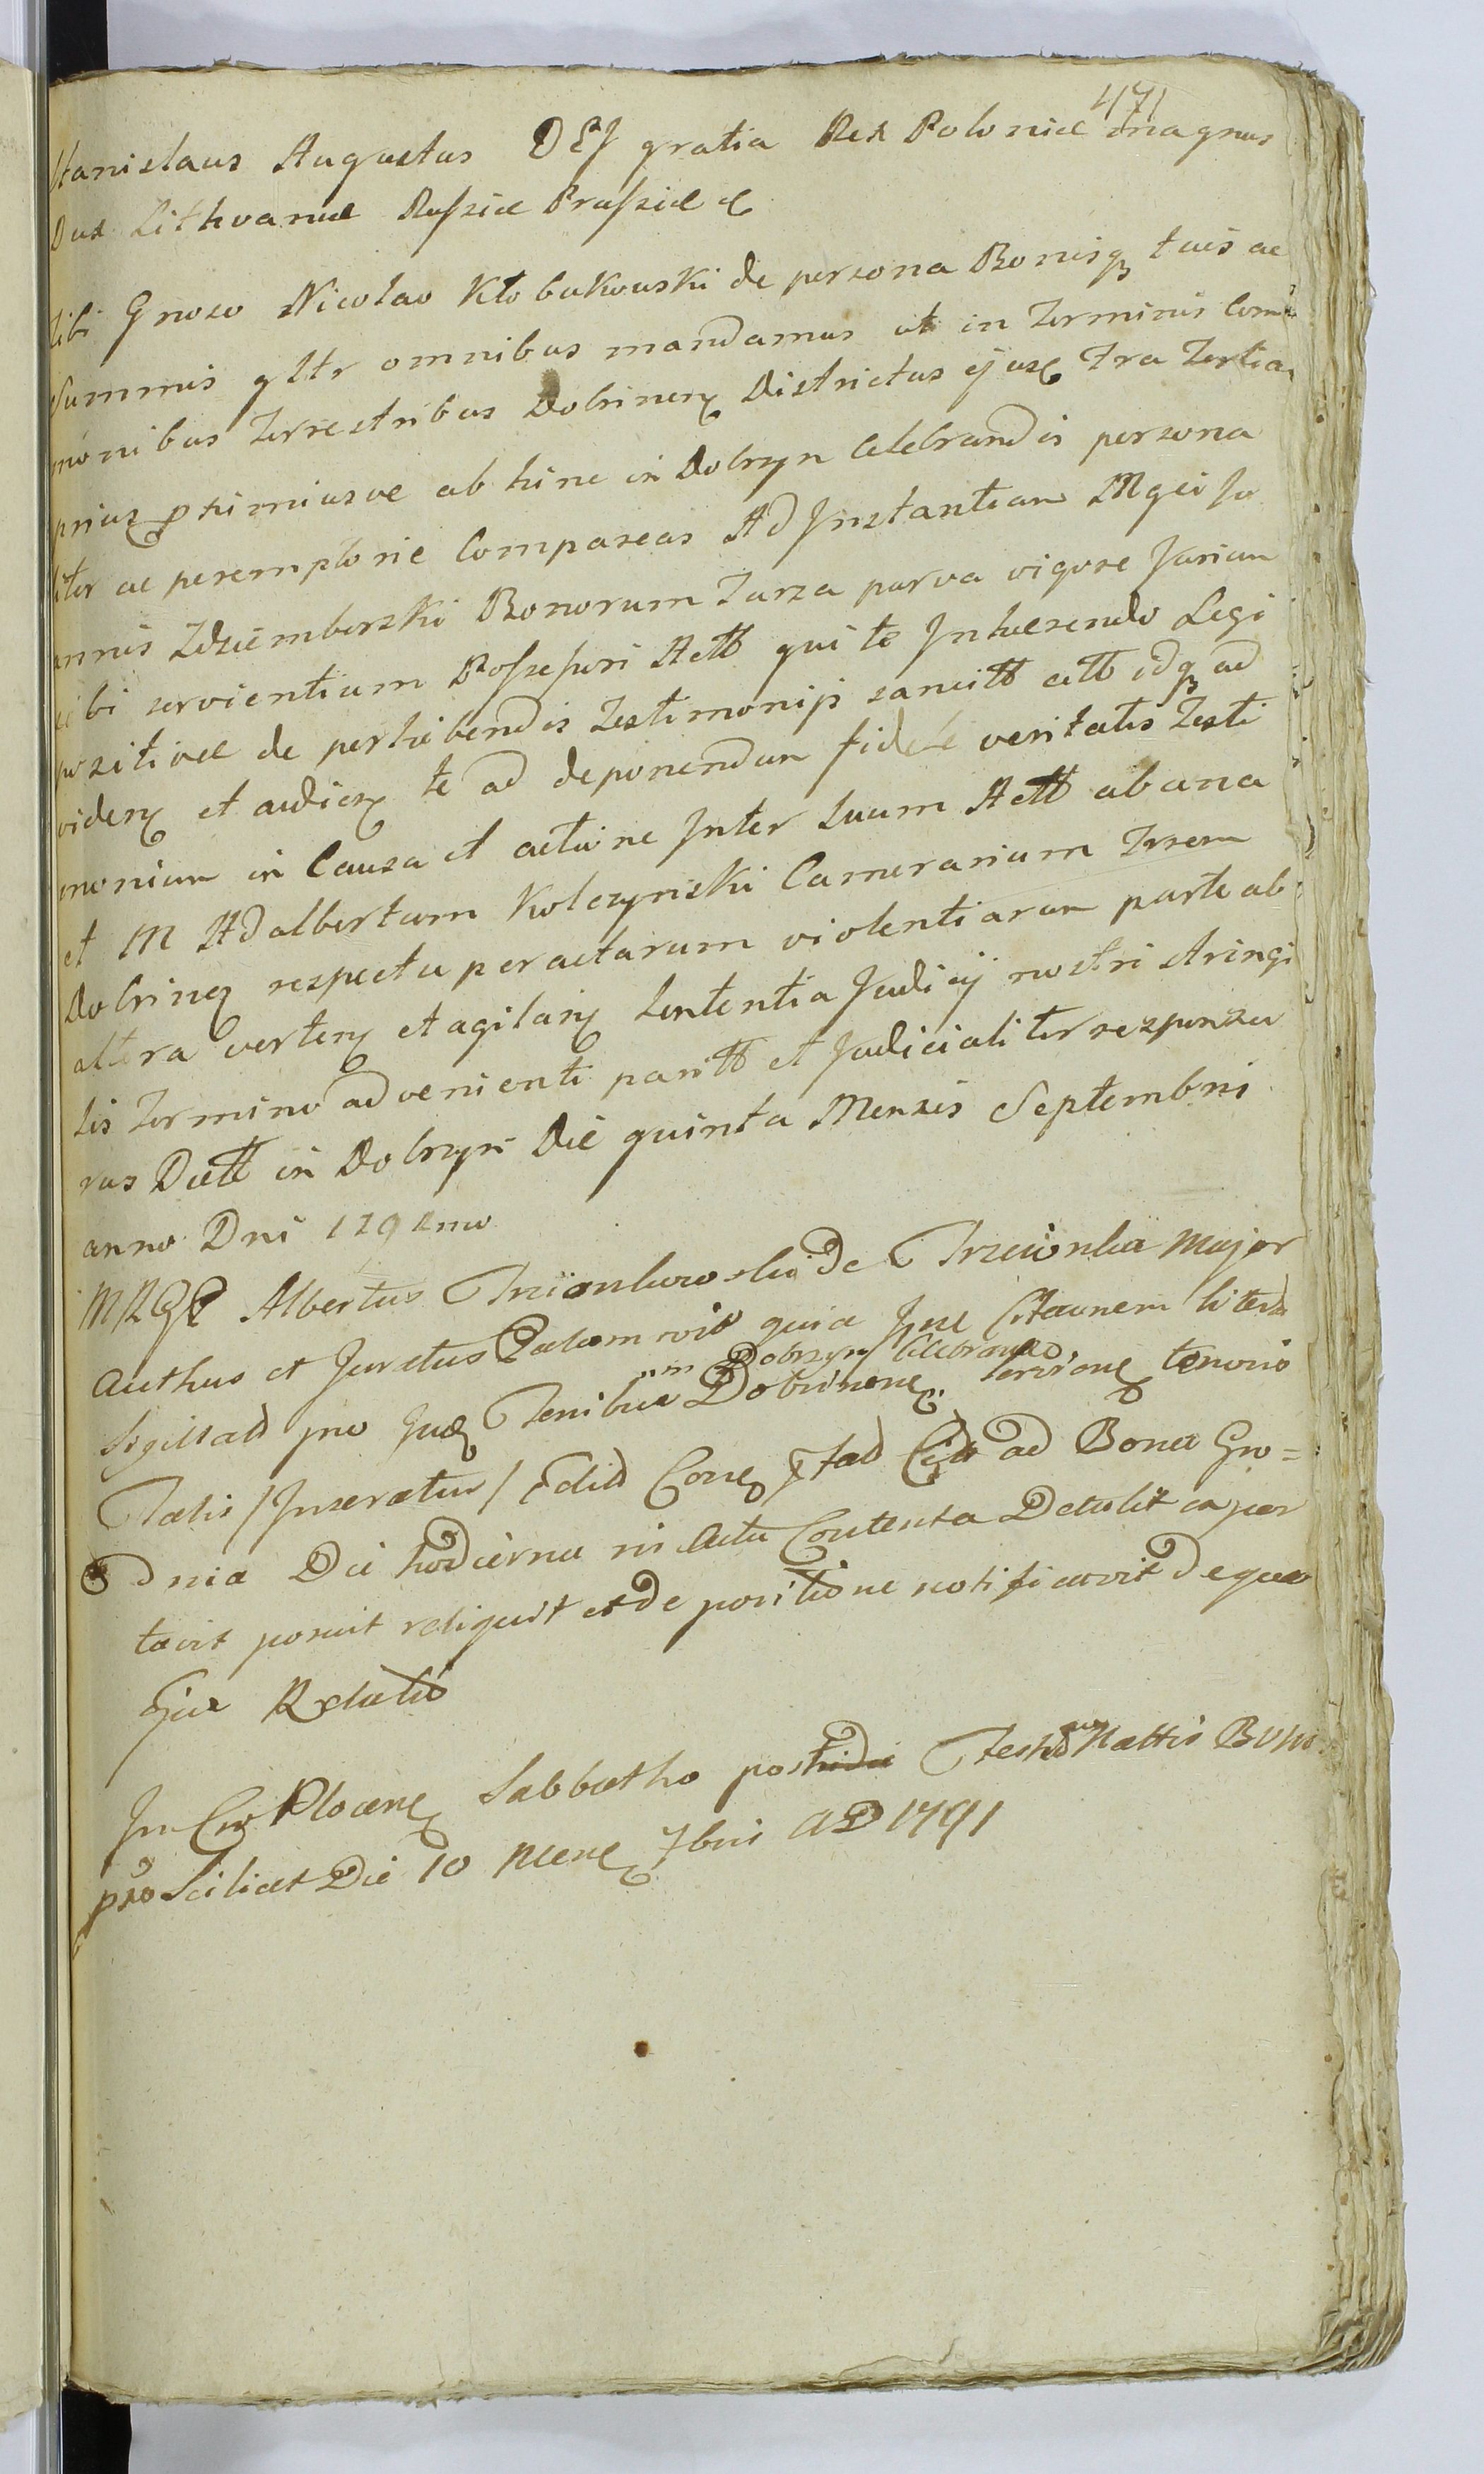 471
Stanislaus Augustus DEJ gratia Rex Poloniæ magnus
Dux Lithvaniæ Rusziæ Prusziæ &
Tibi Gnoso Nicolao Kłobukowski de persona Bonisq tuis ac
Summis gltr omnibus mandamus ut in Terminis Com
monibus Terrestribus Dobrinens Districtus ejus Tra Tertia
prius p himiusve ab hinc in Dobrzyn Celebrandis persona
liter ac peremptorie Compareas Ad Jnstantiam Mgci Jo
annis Zdziemborski Bonorum Turza parva vigore Jurium
sibi servientium Poszesori Actt qui te Jnhærendo Legi
positivæ de perhibendis Testimonijs sancitt citt idq ad
videns et audiens te ad deponendum fidele veritatis Testi
monium in Causa et actione Jnter Suum Actt ab una
et M Adalbertum Kolczynski Camerarium Trrem
Dobrinen respectu peractarum violentiarum parte ab
altera verten et agitan Sententia Judicij nostri stringi
tis Termino advenienti paritt et Judicialiter responsu
rus Datt in Dobrzyn Die quinta Mensis Septembri
anno Dni 1791mo
MRGP Albertus Trzionkowski de Trzcionka Major
Authus et Juratus Palam vis quia Jnse Citaonem literd
in Dobrzyn Celebrand
Sigillatd pro Juds Tenibus Dobrinens. Terrione tenoris
Talis /Jnseratur/ Edid Cone Ptad Citt ad Bona Gro=
dnia Die hodierna in Actu Contenta Detulit impor
tavit posuit reliquit et de positione notificavit De quo
Ejus Relatio
Jn Cro Plocens Sabbatho post Festu Nattis BVM
pxo Scilicet Die 10 Mens 7bris AD 1791